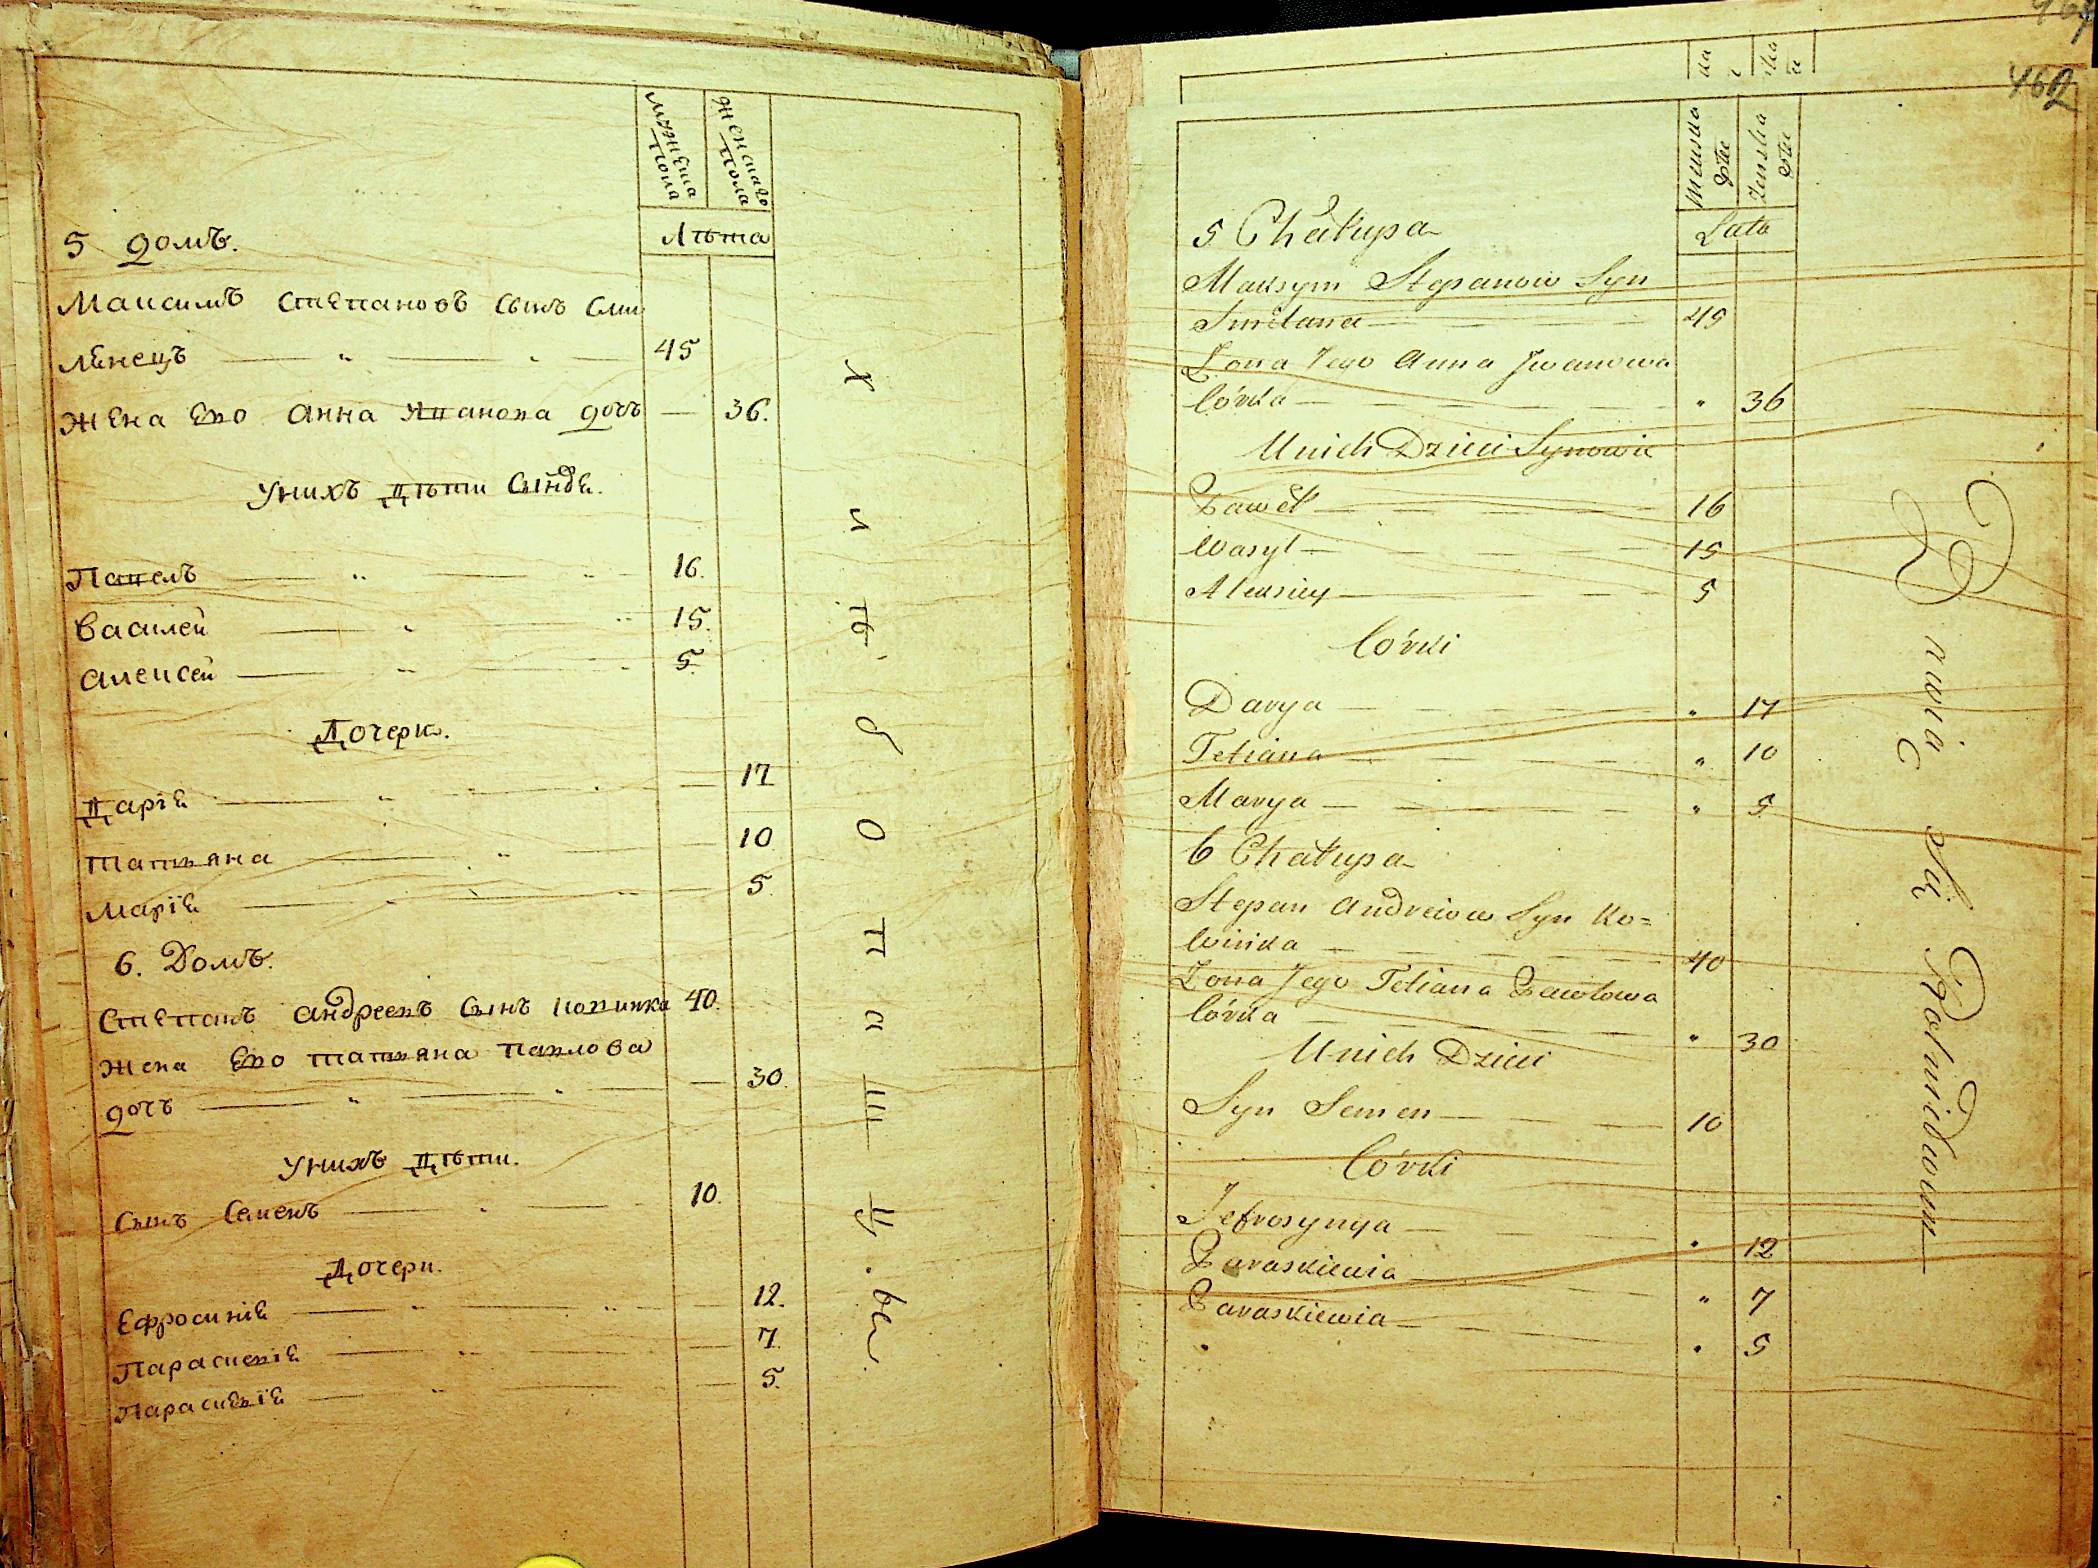 мужеска пола
женскаго пола
Лѣта
5 домъ.
Максимъ Степановъ сынъ Сми
45
Жена Его Анна Ивановa дочъ — 36.
Унихъ Дѣти Сыновѣ.
Павелъ 16.
Василей 15.
Алексей 5.
Дочери.
Даріѣ 17
Татьяна 10
Маріѣ 5
6. Домъ.
Степанъ Андреевъ Сынъ Ковинка 40.
Жена Его Татьяна Павлова
дочъ 30.
Унихъ Дѣти.
Сынъ Семенъ 10.
Дочери.
Ефросиніѣ 12.
Параскевіѣ 7.
Параскевіѣ 5.
Хлѣбопашцы.
462
Męuska płec
Żenska płec
Lata
5 Chałupa
Maksym Stepanow Syn
Smetana 45
Żona Jego Anna Jwanowa
Córka " 36
Unich Dzieci Synowie
Paweł 16
Wasyl 15
Aleksiey 5
Córki
Darya " 17
Tetiana " 10
Marya " 5
6 Chałupa
Stepan Andreiow Syn Ko=
winka 40
Żona Jego Tetiana Pawłowa
Córka " 30
Unich Dzieci
Syn Semen 10
Córki
Jefrosynya " 12
Paraskiewia " 7
Paraskiewia " 5
Bawią się Rolnictwem